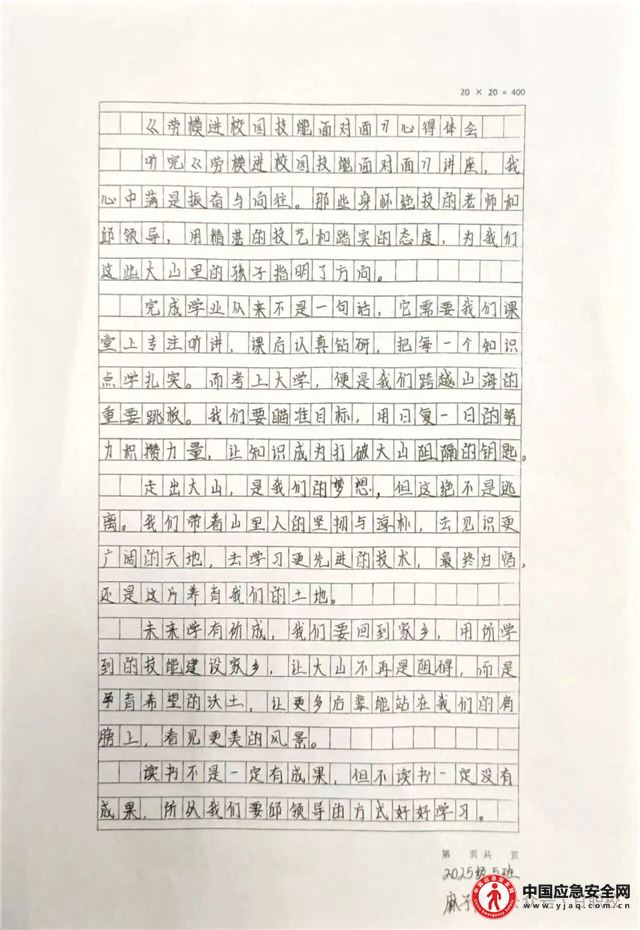 20 × 20 = 400
《劳模进校园技能面对面》心得体会
听完《劳模进校园技能面对面》讲座，我
心中满是振奋与向往。那些身怀绝技的老师和
邱领导，用精湛的技艺和踏实的态度，为我们
这些大山里的孩子指明了方向。
完成学业从来不是一句话，它需要我们课
堂上专注听讲，课后认真钻研，把每一个知识
点学扎实。而考上大学，便是我们跨越山海的
重要跳板。我们要瞄准目标，用日复一日的努
力积攒力量，让知识成为打破大山阻隔的钥匙。
走出大山，是我们的梦想，但这绝不是逃
离。我们带着山里人的坚韧与淳朴，去见识更
广阔的天地，去学习更先进的技术，最终归宿，
还是这片养育我们的土地。
未来学有所成，我们要回到家乡，用所学
到的技能建设家乡，让大山不再是阻碍，而是
孕育希望的沃土，让更多后辈能站在我们的肩
膀上，看见更美的风景。
读书不是一定有成果，但不读书一定没有
成果，所以我们要邱领导由方式好好学习。
第 页共 页
2025级5班
麻子
中国应急安全网
www.yjaq.com.cn